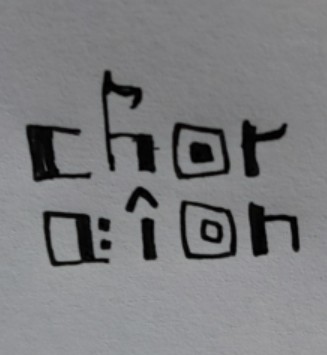 chor
a:îon